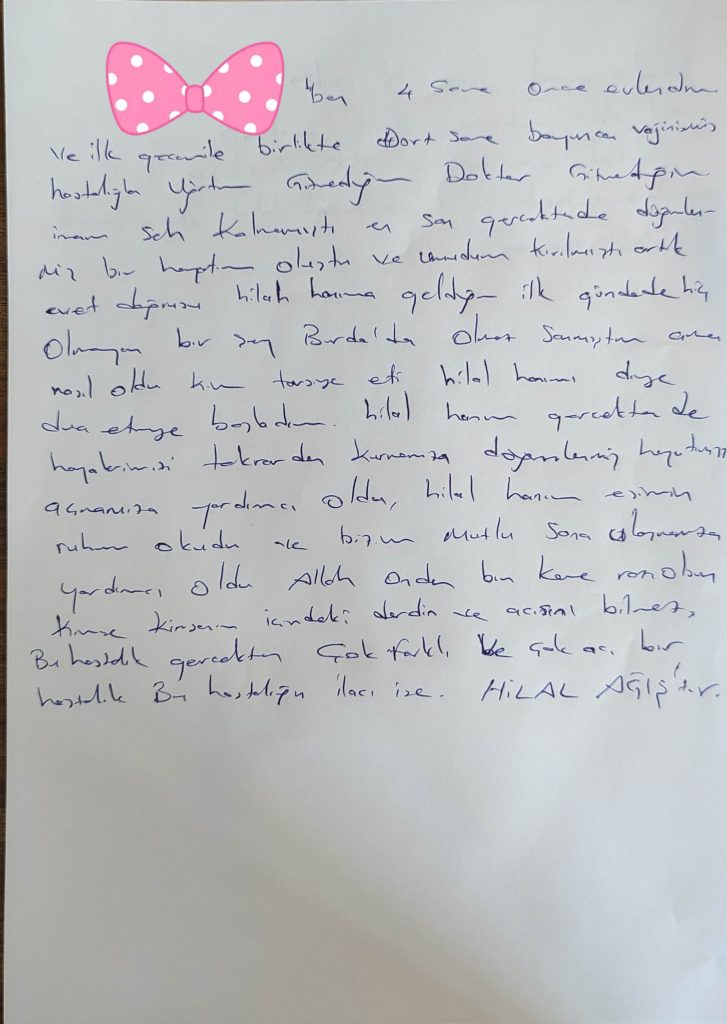 ben 4 Sene Once evlendim
ve ilk gecemile birlikte Dört sene boyunca vajinismus
hastalığla Uğrtım Gitmediğim Doktor Gitmediğim
imam Seh Kalmamıştı en son gerçektende düğümlen-
miş bir hayatım oluştu ve umudum kırılmıştı artık
evet doğrusu hilal hanıma geldiğim ilk gündede hiç
Olmayan bir şey Burda'da Olmaz Sanmıştım ama
nasıl oldu kim tavsiye eti hilal hanımı diye
dua etmeye başladım. hilal hanım gerçekten de
hayalerimizi tekrardan kurmamıza düğümlenmiş hayatımızı
açmamıza yardımcı oldu, hilal hanım eşimin
ruhunu okudu ve bizim Mutlu Sona ulaşmamıza
yardımcı oldu Allah Ondan bin kere razı olsun
Kimse kimsenin içindeki derdini ve acısını bilmez,
Bu hastalık gerçekten Çok farklı Ve çok acı bir
hastalık Bu hastalığın ilacı ise. HİLAL AĞIŞ'tır.